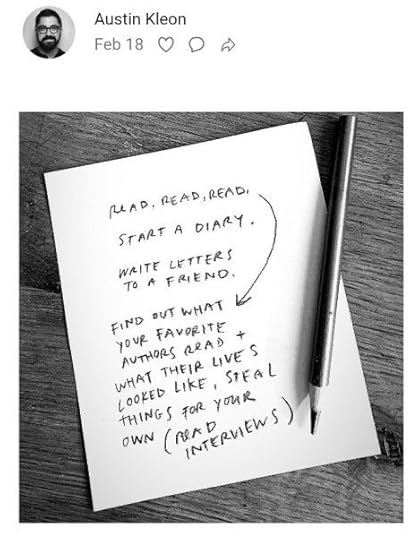 Austin Kleon
Feb 18
READ, READ, READ.
START A DIARY.
WRITE LETTERS
TO A FRIEND.
FIND OUT WHAT
YOUR FAVORITE
AUTHORS READ +
WHAT THEIR LIVE'S
LOOKED LIKE, STEAL
THINGS FOR YOUR
OWN (READ
INTERVIEWS)